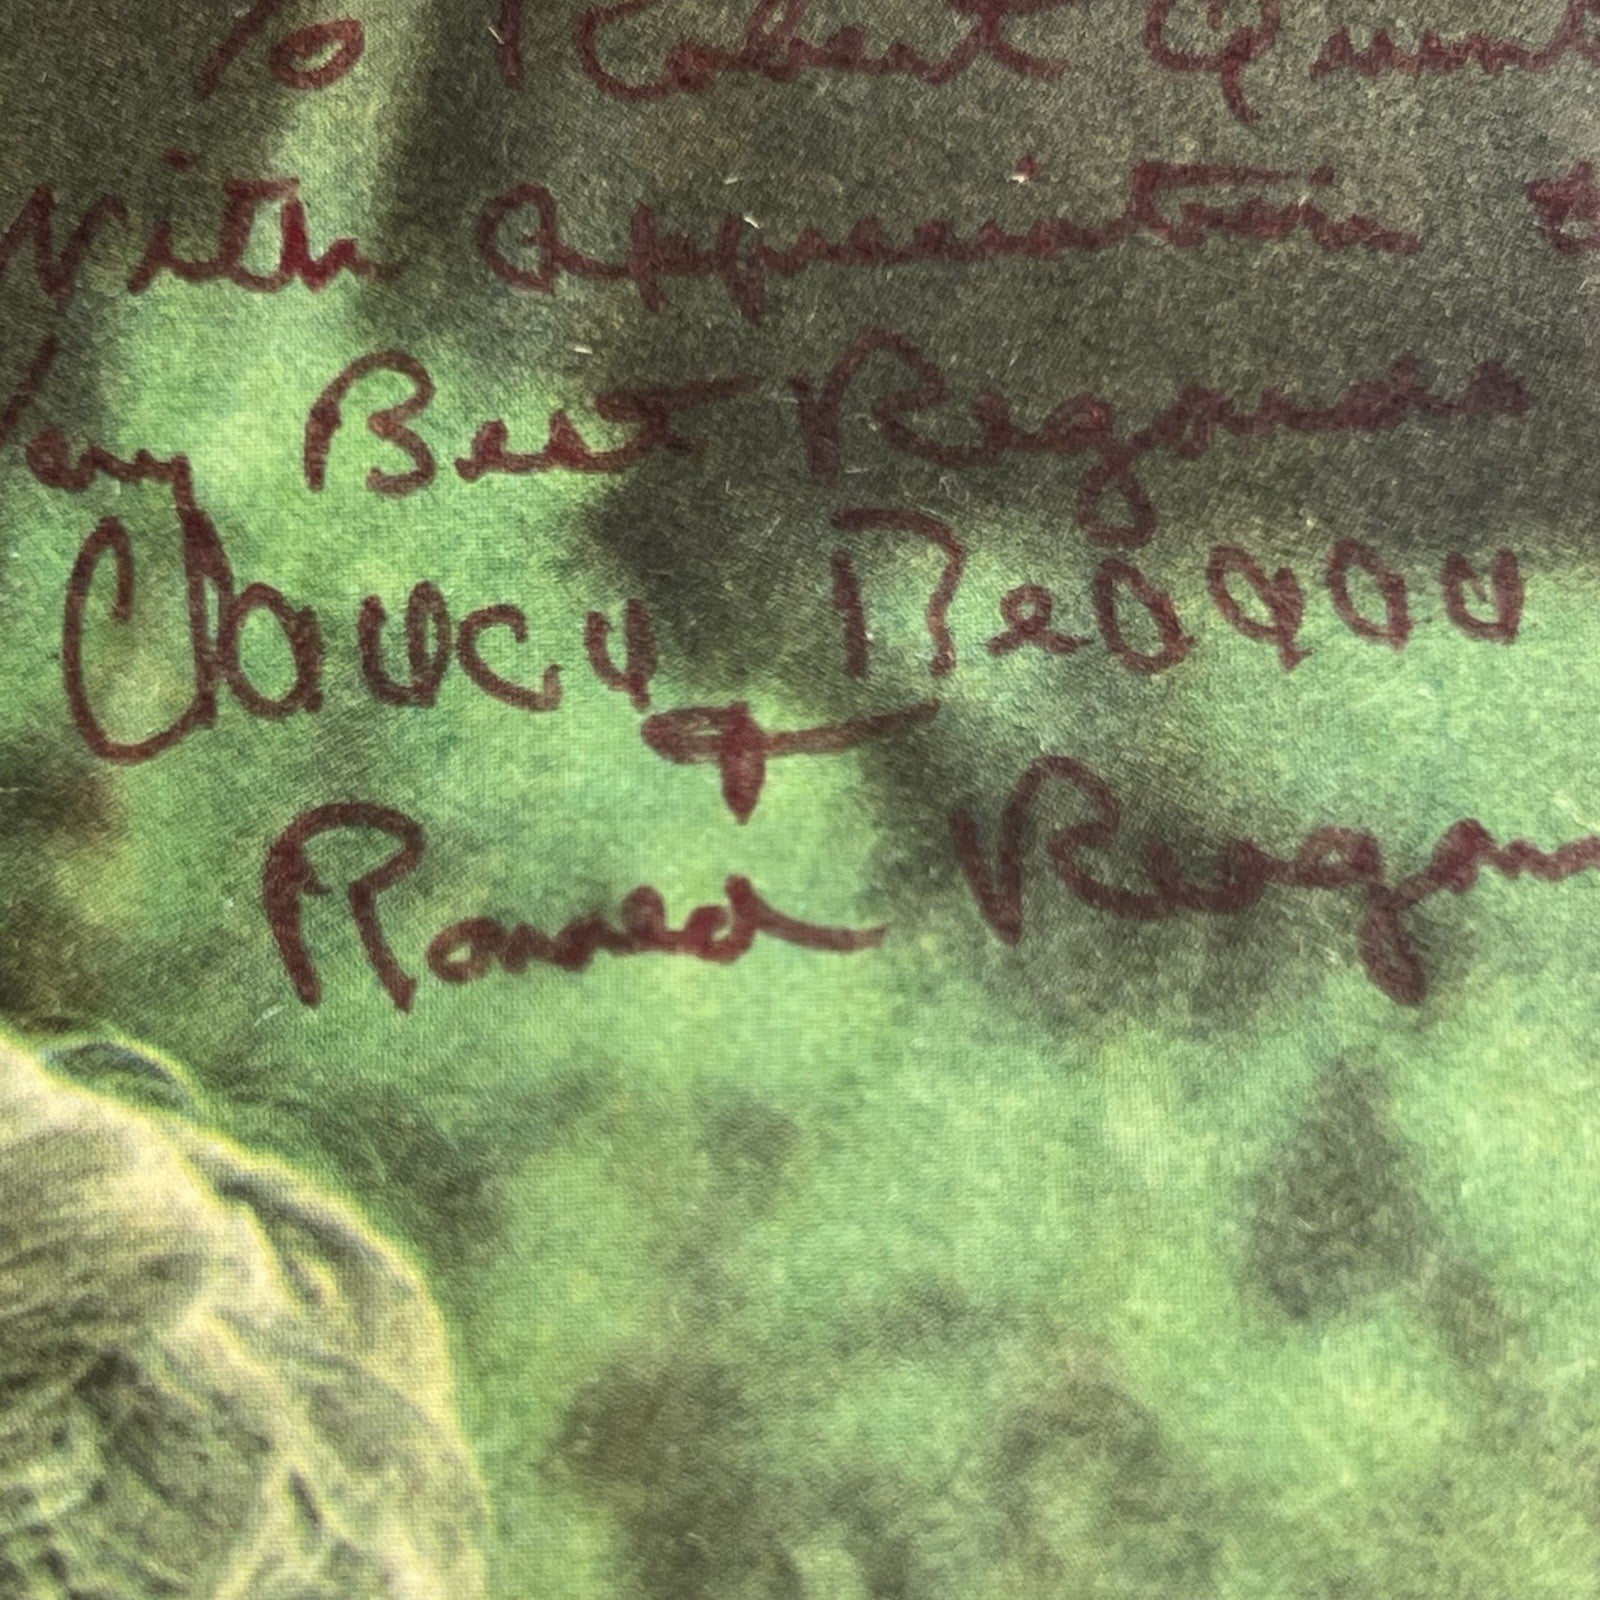 To Robert
With Appreciation &
Very Best Regards
Nancy Reagan
&
Ronald Reagan